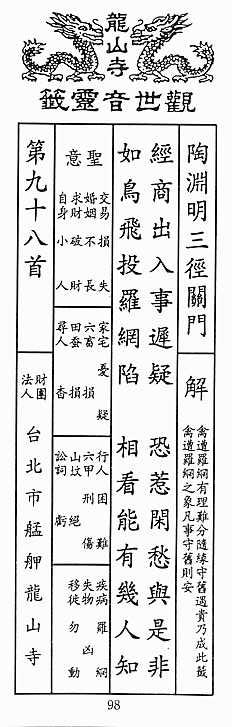 龍山寺
觀世音靈籤
陶淵明三徑關門
解
禽遭羅網有理難分隨緣守舊遇貴乃成此籤
禽遭羅網之象凡事守舊則安
經商出入事遲疑　恐惹閑愁與是非
如鳥飛投羅網陷　相看能有幾人知
聖意
交易損失
婚姻不長
求財破財
自身小人
家宅憂疑
六畜損
田蚕損
尋人杳
行人困難
六甲刑傷
山坟絕
訟詞虧
疾病羅網
失物凶
移徙勿動
第九十八首
財團
法人
台北市艋舺龍山寺
98